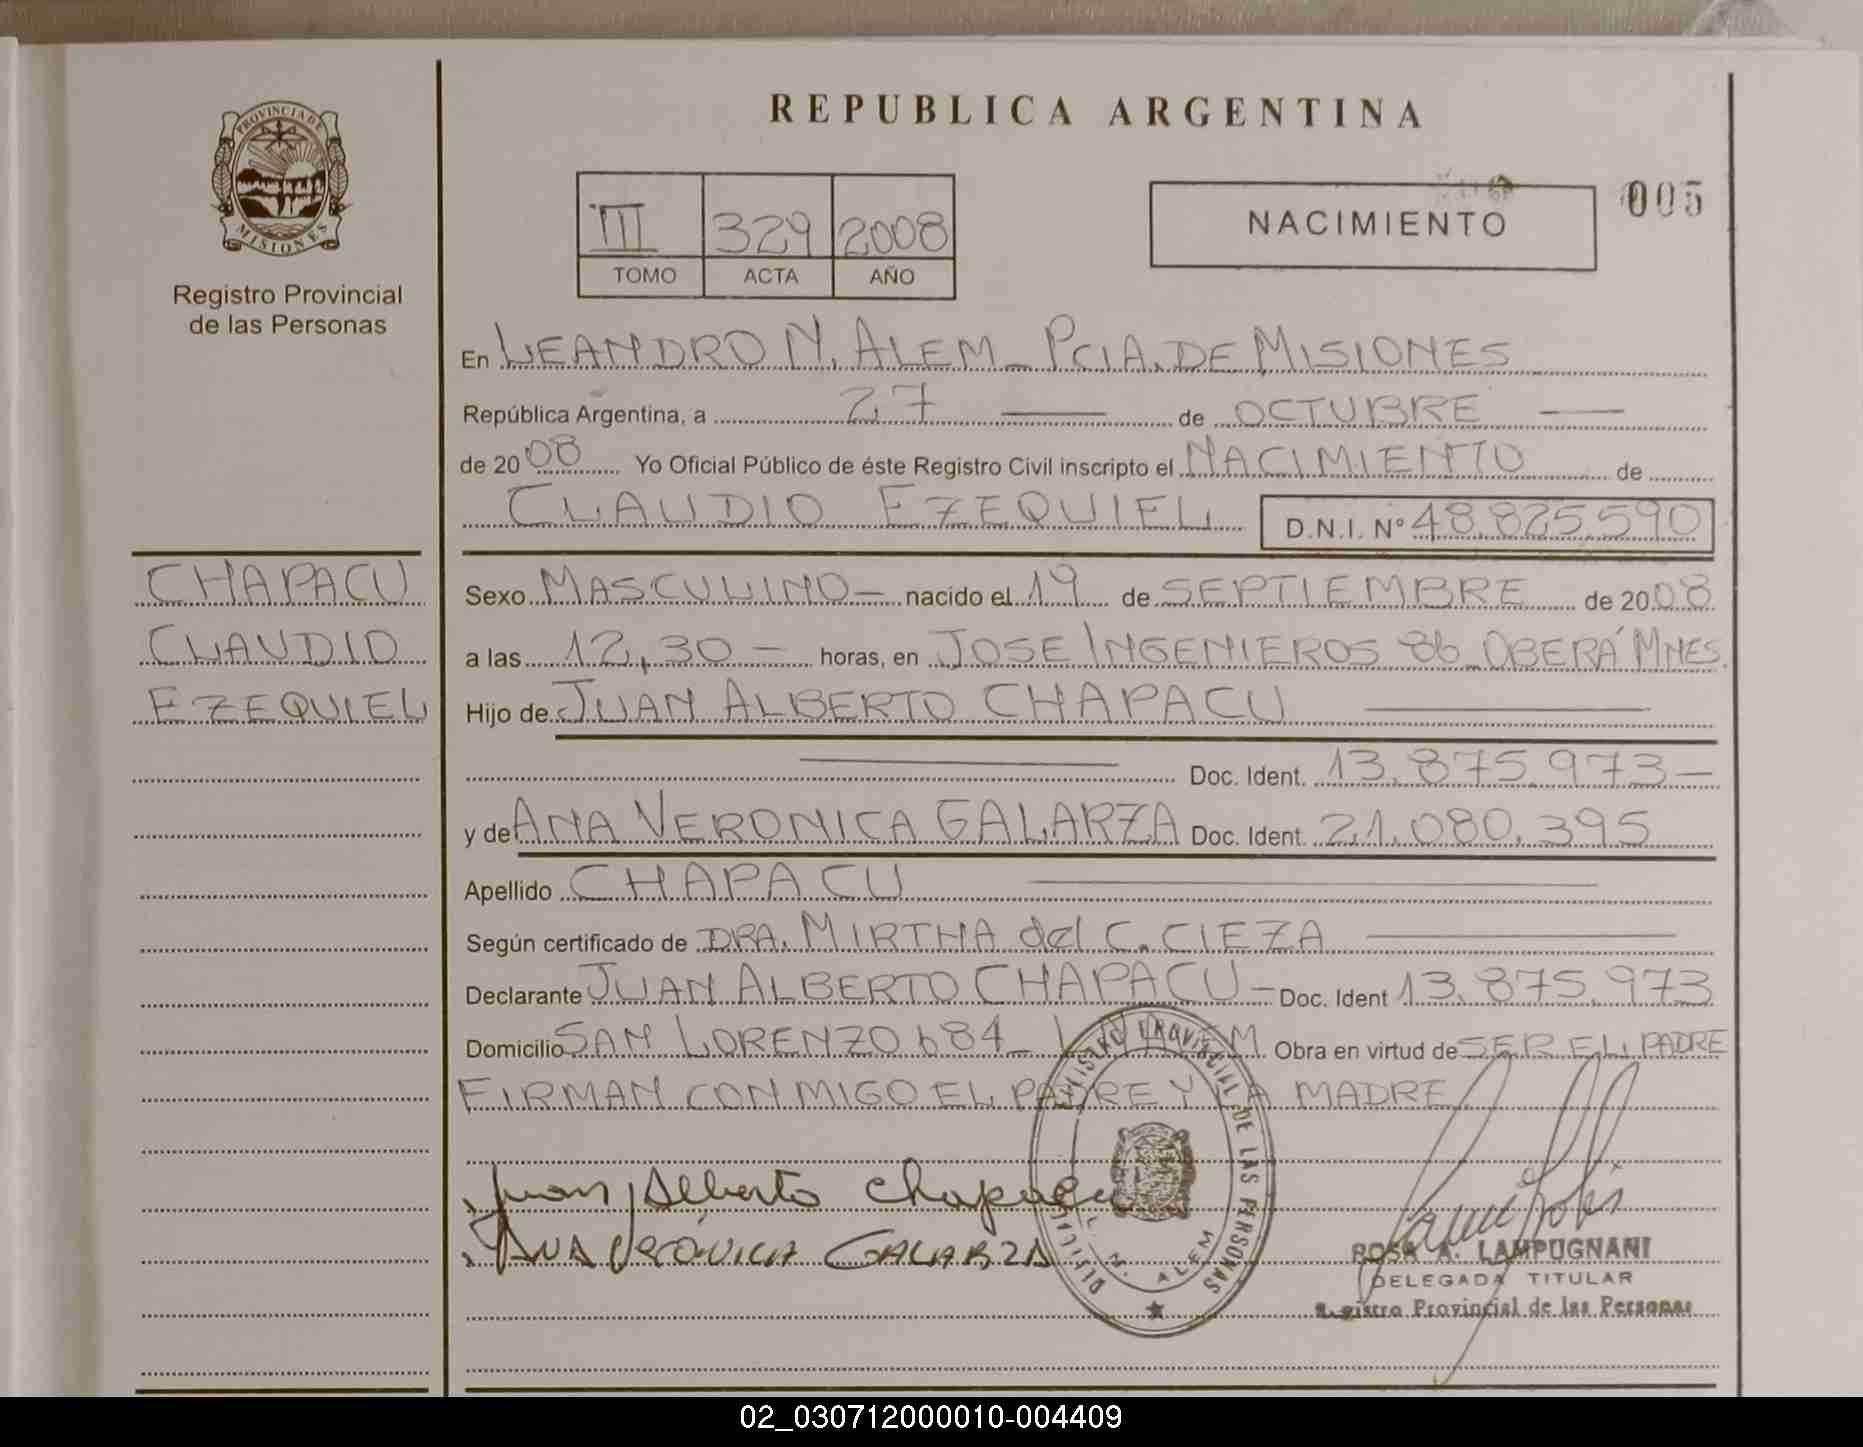 PROVINCIA DE
MISIONES
Registro Provincial
de las Personas
REPUBLICA ARGENTINA
III 329 2008
TOMO ACTA AÑO
NACIMIENTO
005
En LEANDRO N. ALEM - PCIA. DE MISIONES
República Argentina, a 27 de OCTUBRE
de 2008 Yo Oficial Público de éste Registro Civil inscripto el NACIMIENTO de
CLAUDIO EZEQUIEL D.N.I. Nº 48.825.590
CHAPACU
CLAUDIO
EZEQUIEL
Sexo MASCULINO - nacido el 19 de SEPTIEMBRE de 2008
a las 12,30 - horas, en JOSE INGENIEROS 86 - OBERÁ MNES.
Hijo de JUAN ALBERTO CHAPACU
Doc. Ident. 13.875.973 -
y de ANA VERONICA GALARZA Doc. Ident. 21.080.395
Apellido CHAPACU
Según certificado de DRA. MIRTHA del C. CIEZA
Declarante JUAN ALBERTO CHAPACU - Doc. Ident 13.875.973
Domicilio SAN LORENZO 684 - L.N. ALEM Obra en virtud de SER EL PADRE
FIRMAN CONMIGO EL PADRE Y LA MADRE
Juan Alberto Chapacu
ANA VERÓNICA GALARZA
REGISTRO PROVINCIAL DE LAS PERSONAS
L. N. ALEM
ROSA A. LAMPUGNANI
DELEGADA TITULAR
Registro Provincial de las Personas
02_030712000010-004409